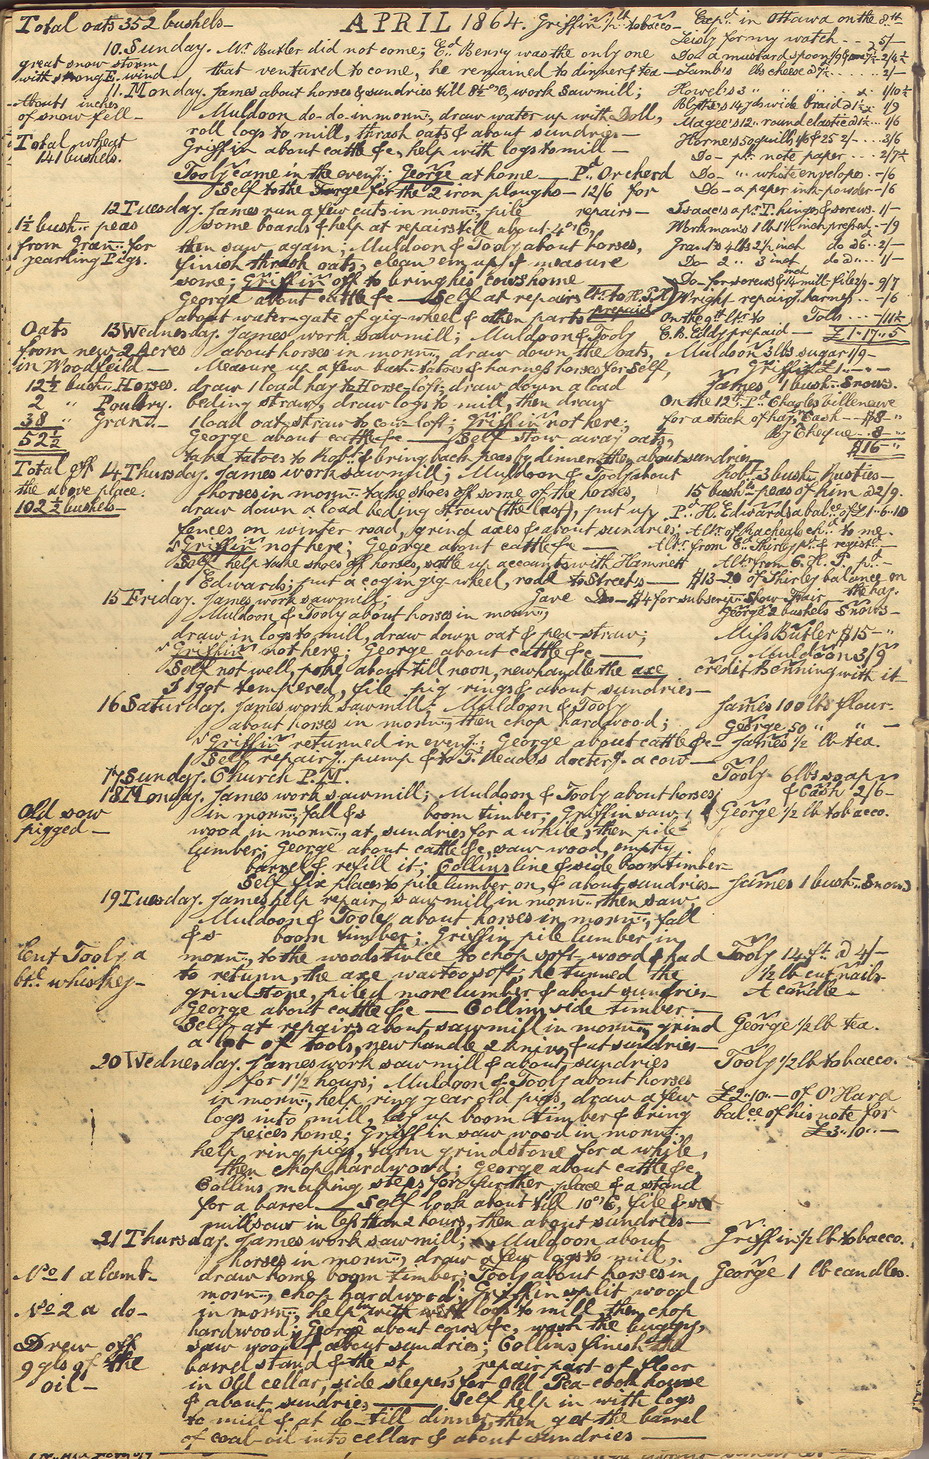 Total oats 352 bushels—
APRIL 1864. Griffin ½ lb tobacco—
Exp.d in Ottawa on the 8th
10. Sunday. Mr. Butler did not come; Ed. Benny was the only one
great snow storm
with strong E. wind
that ventured to come, he remained to dinner & tea—
11. Monday. James about horses & sundries till 8½ o'C, work sawmill;
About 1 inches
of snow fell—
Muldoon do-do-in morn.g, draw water up with Doll,
roll logs to mill, thrash oats & about sundries—
Total wheat
141 bushels.
Griffin about cattle &c, help with logs to mill—
Tooly came in the even.g; George at home— P.d Orcherd
Self to the Forge for the 2 iron ploughs— 12/6 for
repairs—
for my watch - - 5/-
Lamb's lbs cheese
Howel's 3 " " " 1/10½
14 yds wide braid 1/9
Magee's 12 " round elastic 1/6
note paper - - - 2/7½
Do - " white envelopes - -/6
Do - a paper ink-powder -/6
12 Tuesday. James run a few cuts in morn.g, pile
some boards & help at repairs till about 4 o'C,
then saw again; Muldoon & Tooly about horses,
finish thrash oats, clean em up & measure
some; Griffin off to bring his cows home
George about cattle &c — Self at repairs
about water-gate of gig-wheel & other parts prepaid
1½ bush.. peas
from Gran.. for
yearning Pigs.
Isaac's a pr. T. hinges & screws - 1/-
Workman's 1 lb 1½ inch -/9
Grant's 4 lbs 2½ inch do 6 - 2/-
Do - 2 " 3 inch do - 1/-
Wright repair.g harness - -/6
E.B. Eddy prepaid — £1.17.5
13 Wednesday. James work sawmill; Muldoon & Tooly
about horses in morn.g, draw down the oats,
Measure up a few bush.. tatoes & harness horses for Self,
draw 1 load hay to Horse-loft; draw down a load
beding straw, draw logs to mill, then draw
1 load oat-straw to cow-loft; Griffin not here;
George about cattle &c — Self stow away oats,
take tatoes to & bring back peas by dinner, then about sundries
Oats
from new 2 Acres
in Woodfeild—
12½ bush.. Horses.
2 " Poultry.
38 " Gran..—
52½
Muldoon 3 lbs sugar 1/9—
Griffin £1-"-"
James, 1 bush.. Snows.
On the 12th P.d Charles billeneuve
for a stack of hay, Cash - - $8-"
By Cheque - - 8-"
$16 "
14 Thursday. James work sawmill; Muldoon & Tooly about
horses in morn.g take shoes off some of the horses,
draw down a load beding straw (the last), put up
fences on winter road, grind axes & about sundries;
Griffin not here; George about cattle &c —
Self help take shoes of horses, settle up accounts with Hamnett
Edwards; put a cog in gig wheel, rode to Streets—
Total off
the above place.
102½ bushels—
Rob.t 3 bush.. Rusties—
15 bush.. peas of him @ 2/9.
P.d H. Edwards a bal.ce of £1-6-10
$13-20 of Shirley balance on
the hay.
15 Friday. James work sawmill;
Gave Do— $4 for
Muldoon & Tooly about horses in morn.g,
draw in logs to mill, draw down oat & pea-straw;
Griffin not here; George about cattle &c —
Self not well, poke about till noon, new handle the axe
I got tempered, file pig rings & about sundries—
George 2 bushels Snows—
Miss Butler $15-"
Muldoon 3/9
credit Benning with it
16 Saturday. James work sawmill; Muldoon & Tooly
about horses in morn.g, then chop hardwood;
Griffin returned in even.g; George about cattle &c—
Self repair.g pump & to T. Reads doctor.g a cow—
James 100 lbs flour.
George 50 " " —
James ½ lb tea.
17 Sunday. Church P.M.
Tooly 6 lbs soap
& Cash 2/6—
18 Monday. James work sawmill; Muldoon & Tooly about horses;
in morn.g, fall &s boom timber; Griffin saw
wood in morn.g, at sundries for a while, then pile
lumber; George about cattle &c, saw wood, empty
barrel & refill it; Collins line & side boom timber
Self fix places to pile lumber on, & about sundries—
Old sow
pigged—
George ½ lb tobacco.
James 1 bush.. Snows
19 Tuesday. James help repair sawmill in morn.. then saw
Muldoon & Tooly about horses in morn.g, fall
&s boom timber; Griffin pile lumber in
morn.g, to the woods twice to chop soft-wood & had
to return, the axe was too soft; he turned the
grindstone, piled more lumber & about sundries—
George about cattle &c — Collins side timber—
Self at repairs about sawmill in morn.g, grind
a lot of tools, new handle 2 knives, & at sundries—
Lent Tooly a
btl. whiskey—
Tooly 14 ft @ 4/—
½ lb cut nails
A candle—
George ½ lb tea.
20 Wednesday. James work sawmill & about sundries
for 1½ hours; Muldoon & Tooly about horses
in morn.g, help ring year old pigs, draw a few
logs into mill, lay up boom timber & bring
peices home; Griffin saw wood in morn.g,
help ring pigs, turn grindstone for a while,
then chop hardwood; George about cattle &c,
Collins making steps for further place & a stand
for a barrel — Self look about till 10 o'C, file & set
mill saw in less than 2 hours, then about sundries—
Tooly ½ lb tobacco.
£2.10.— of O'Hara
bal.ce of his note for
£3.10.—
21 Thursday. James work sawmill; Muldoon about
horses in morn.g, draw a few logs to mill,
draw home boom timber; Tooly about horses in
morn.g, chop hardwood; Griffin split wood
in morn.g, help in with logs to mill, then chop
hardwood; George about cows &c, wash the buggy,
saw wood & about sundries; Collins finish the
barrel stand & the st , repair part of floor
in Old cellar, side sleepers for Old Pea-cock house
& about sundries — Self help in with logs
to mill & at do-till dinner, then got the barrel
of coal-oil into cellar & about sundries—
No 1 a lamb—
No 2 a do—
Drew off
9 gls of the
oil—
Griffin ½ lb tobacco.
George 1 lb candles.